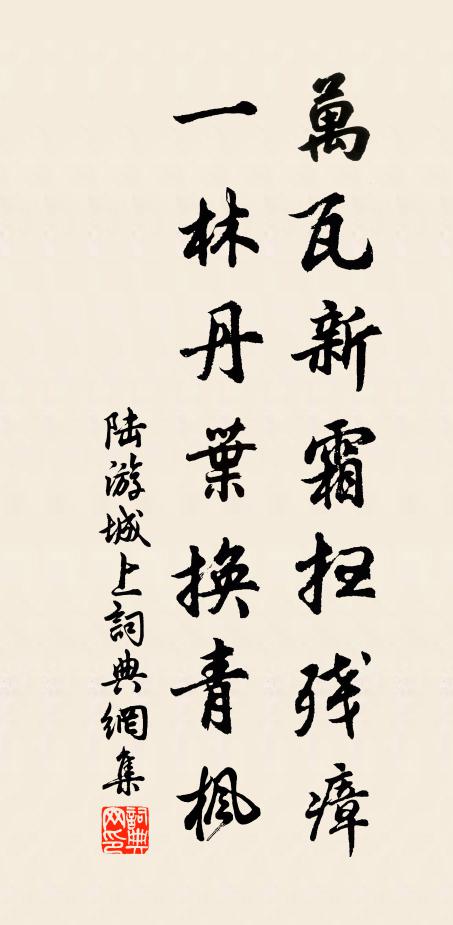 萬瓦新霜扫残瘴
一林丹葉换青楓
陆游城上詞典網集
詞典网印